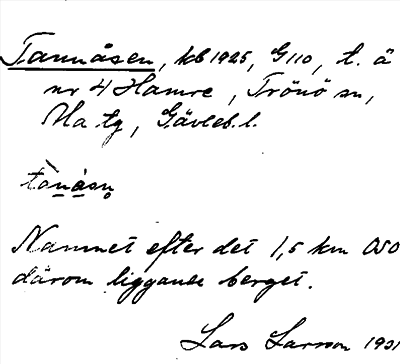 Tannåsen, kb 1925, G110, t. å
nr 4 Hamre, Trönö sn,
Ha tg, Gävleb. l.
tànåsn̥
Namnet efter det 1,5 km OSO
därom liggande berget.
Lars Larsson 1931